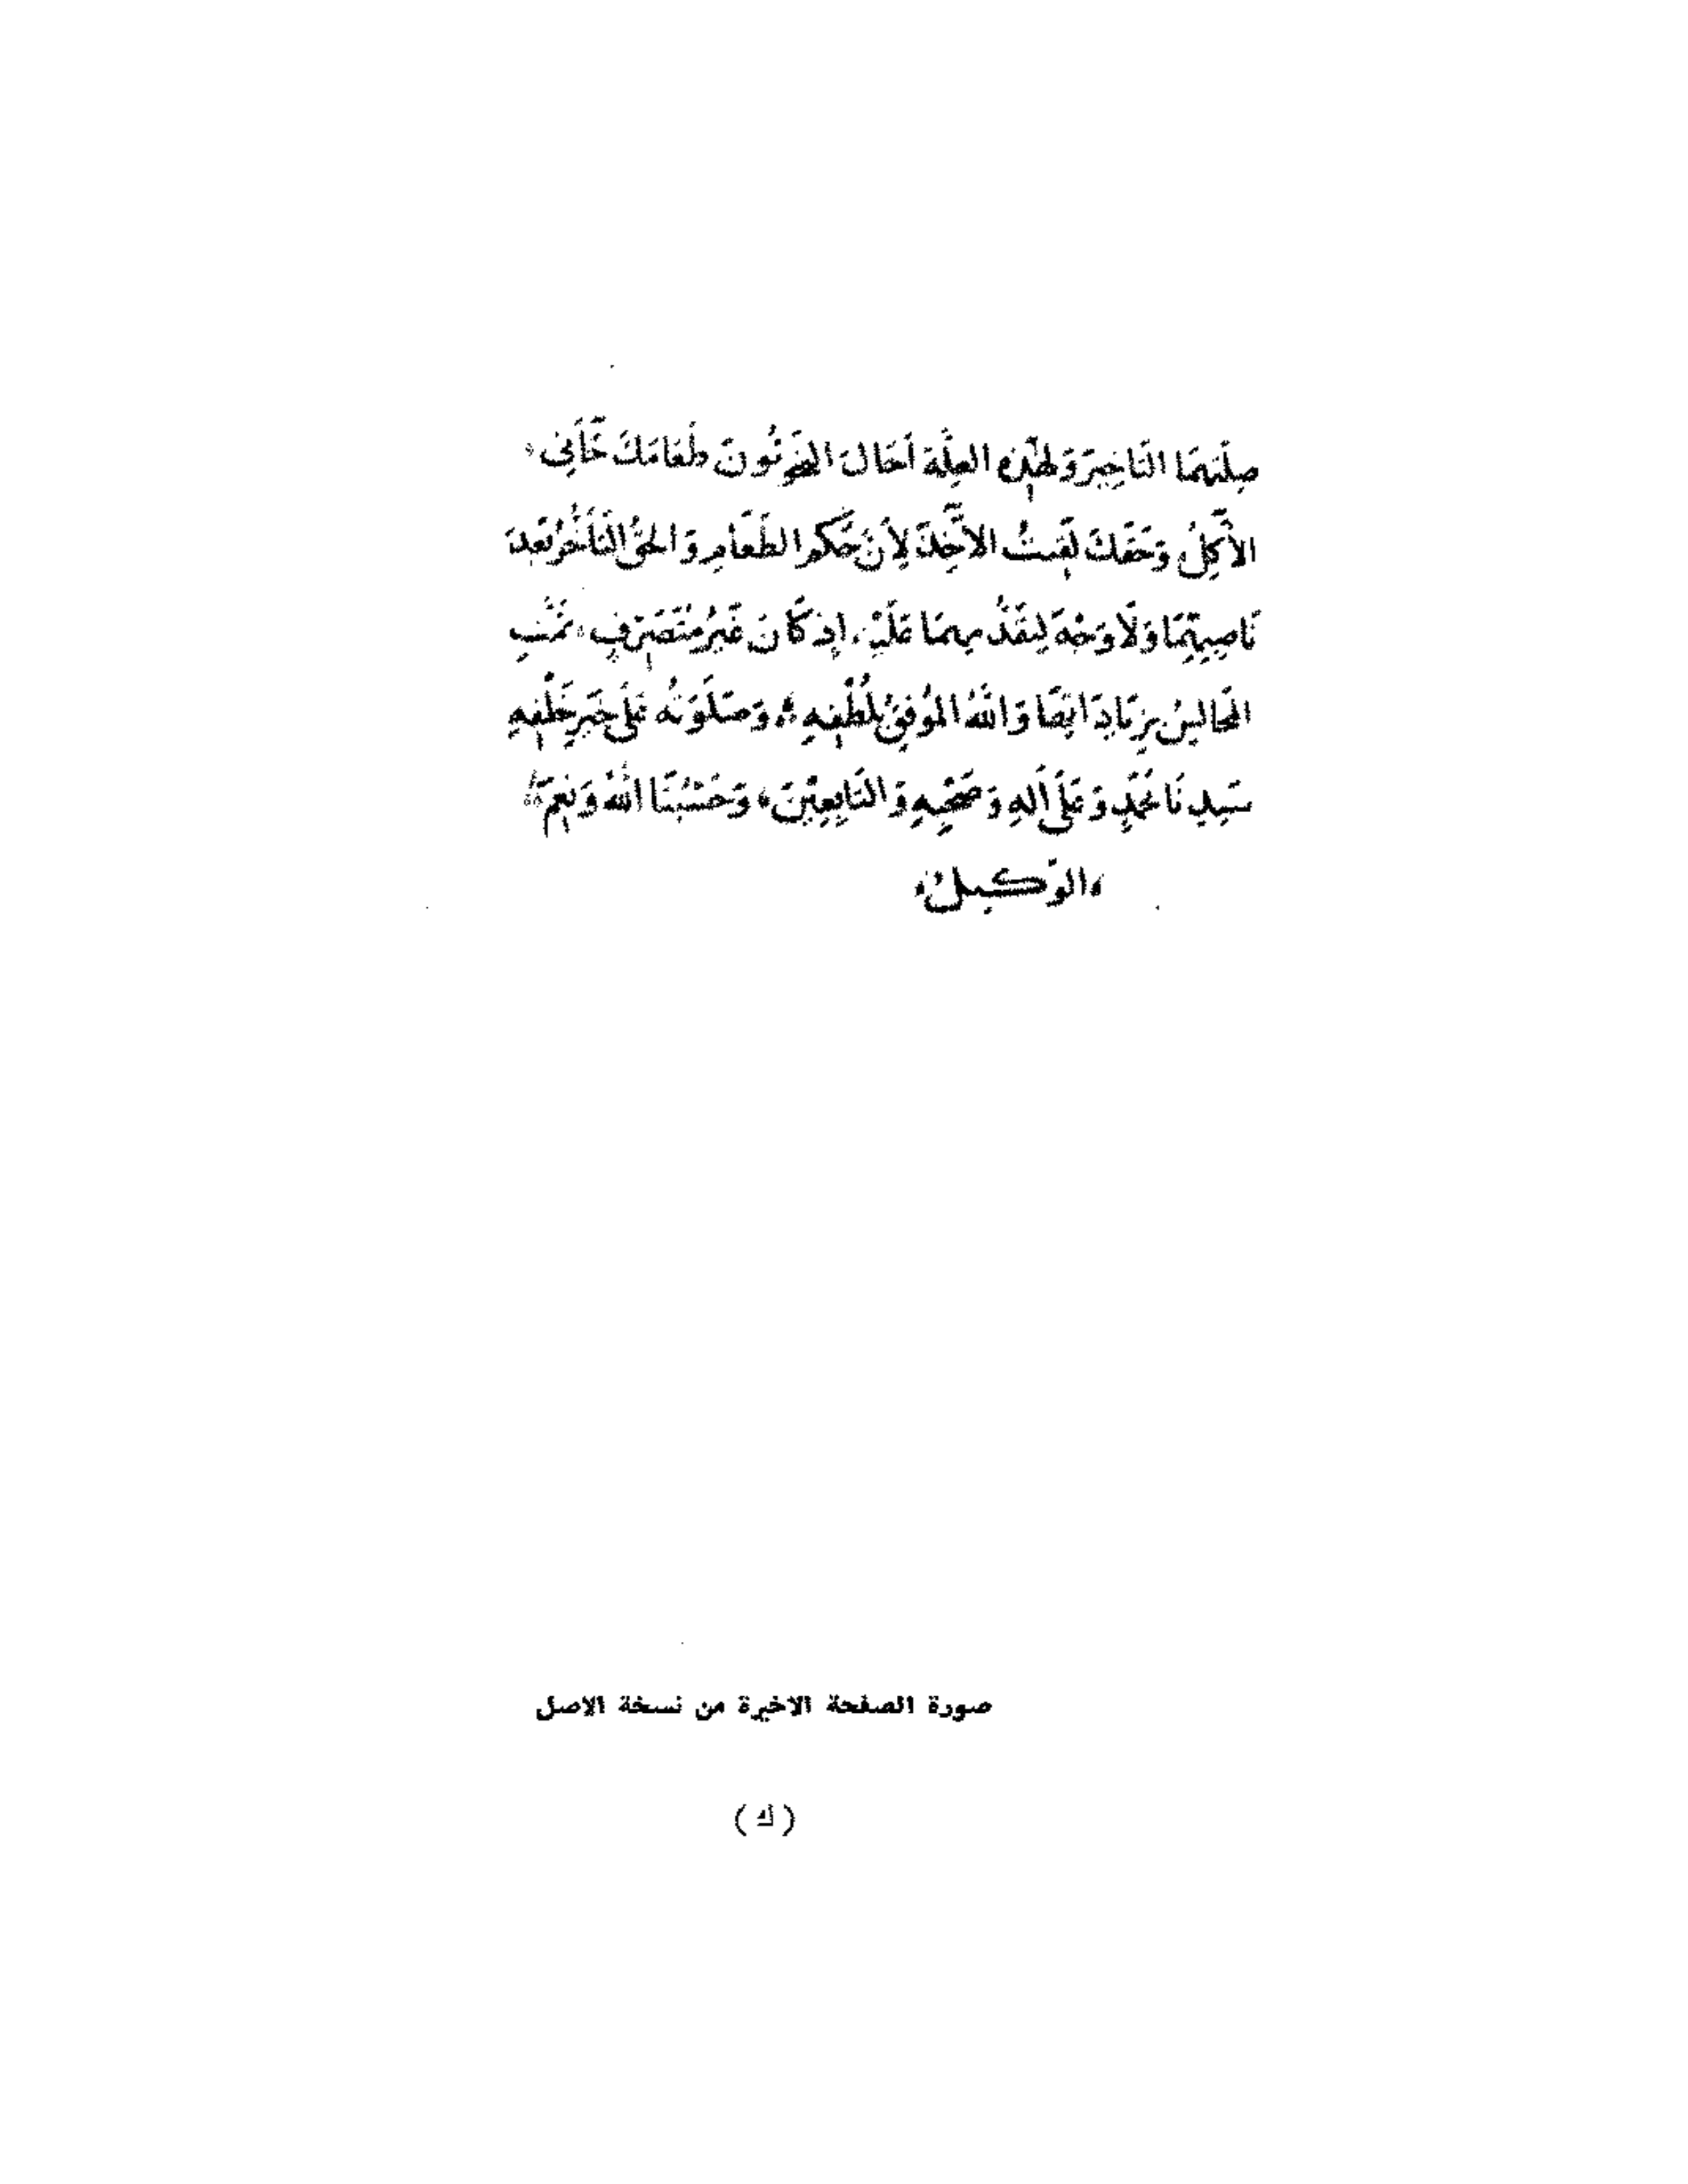 صِلَتِهِمَا التَّاخِيرَ وَلِهَذِهِ العِلَّةِ أَحَالَ النَّحْوِيُّونَ طَعَامَكَ جَأنِى
الآكِلُ وَحَقَّكَ لَقِيتُ الآخِذَ لِأَنَّ حُكمَ الطَّعَامِ وَالحَقِّ التَّأَخُّرُ بَعْدَ
نَاصِبِهِمَا وَلَا وَجْهَ لِتَقَدُّمِهِمَا عَلَيْهِ إِذ كَانَ غَيْرُ مُتَصَرِّفٍ تَمَّتِ
المجَالِسُ بِزِيَادَاتِهَا وَاللهُ المُوَفِّقُ بِلُطْفِهِ وَصَلَوتُهُ عَلَى خَيْرِ خَلْقِهِ
سَيِّدِنَا مُحَمَّدٍ وَعَلَى آلِهِ وَصَحْبِهِ وَالتَّابِعِينَ، وَحَسْبُنَا اللهُ وَنِعْمَ
الوَكِيلُ
صورة الصفحة الاخيرة من نسخة الاصل
(ك)